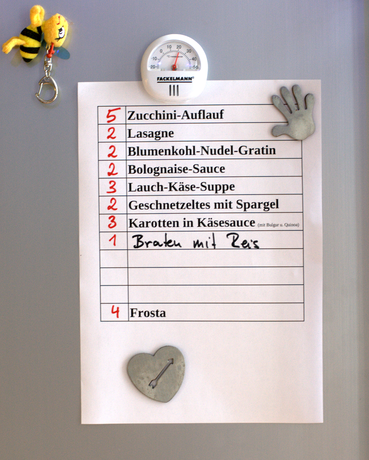 FACKELMANN
5 Zucchini-Auflauf
2 Lasagne
2 Blumenkohl-Nudel-Gratin
2 Bolognaise-Sauce
3 Lauch-Käse-Suppe
2 Geschnetzeltes mit Spargel
3 Karotten in Käsesauce (mit Bulgur u. Quinoa)
1 Braten mit Reis
4 Frosta